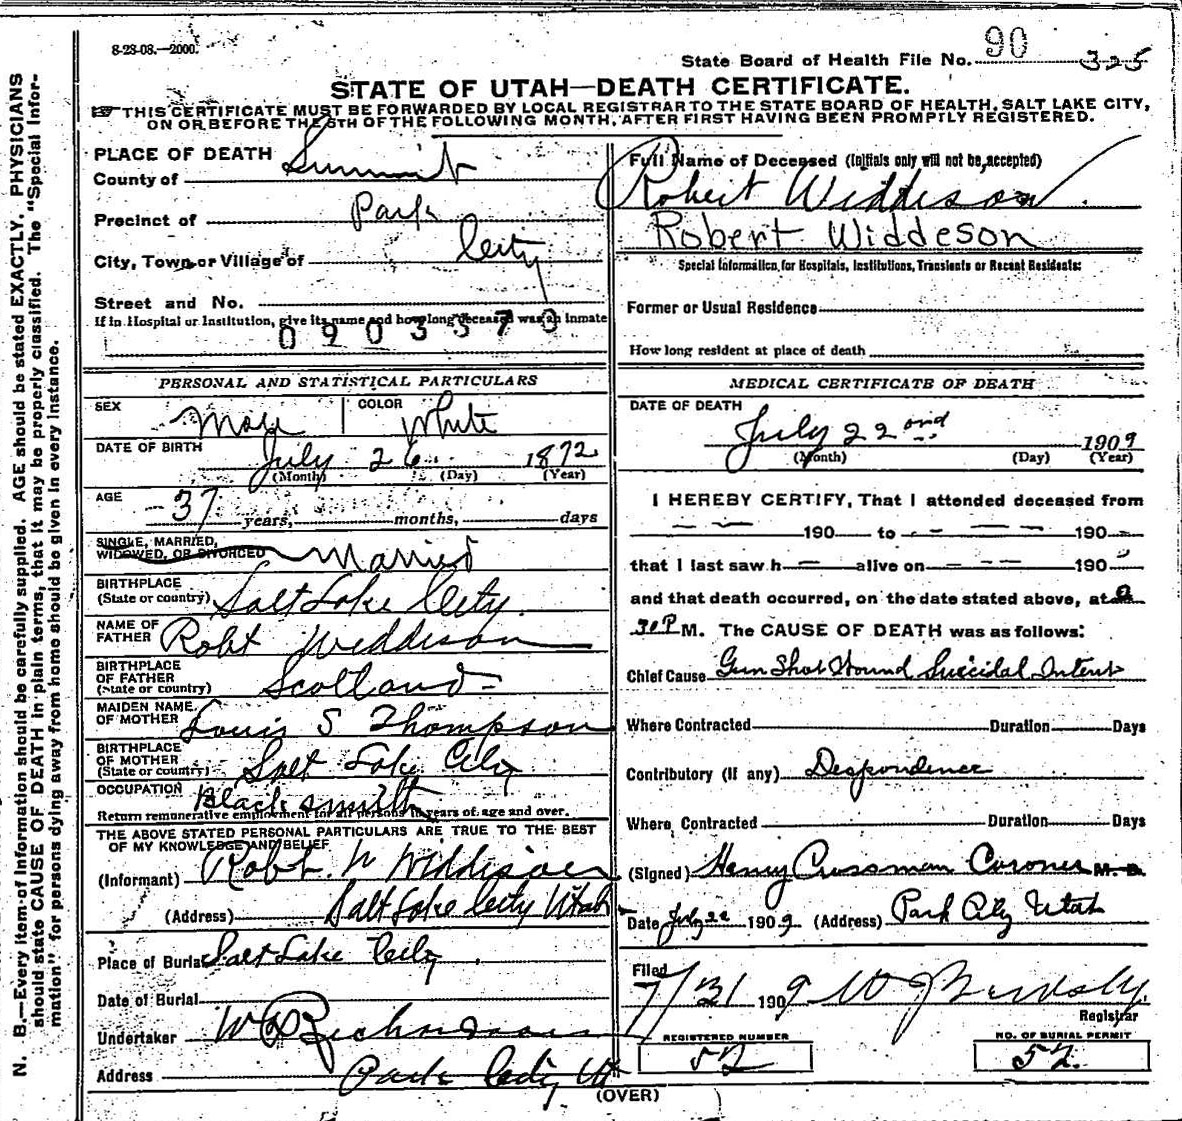 8-28-08.—2000.
State Board of Health File No. 90 325
STATE OF UTAH—DEATH CERTIFICATE.
THIS CERTIFICATE MUST BE FORWARDED BY LOCAL REGISTRAR TO THE STATE BOARD OF HEALTH, SALT LAKE CITY,
ON OR BEFORE THE 5TH OF THE FOLLOWING MONTH, AFTER FIRST HAVING BEEN PROMPTLY REGISTERED.
N. B.—Every item of information should be carefully supplied. AGE should be stated EXACTLY. PHYSICIANS
should state CAUSE OF DEATH in plain terms, that it may be properly classified. The "Special Infor-
mation" for persons dying away from home should be given in every instance.
PLACE OF DEATH
County of Summit
Precinct of Park
City, Town or Village of City
Street and No.
If in Hospital or Institution, give its name and how long deceased was an inmate
0903370
PERSONAL AND STATISTICAL PARTICULARS
SEX Male COLOR White
DATE OF BIRTH July 26 1872
(Month) (Day) (Year)
AGE 37 years, months, days
SINGLE, MARRIED,
WIDOWED, OR DIVORCED Married
BIRTHPLACE
(State or country) Salt Lake City.
NAME OF
FATHER Robt Widdison
BIRTHPLACE
OF FATHER
(State or country) Scotland
MAIDEN NAME
OF MOTHER Louis S Thompson
BIRTHPLACE
OF MOTHER
(State or country) Salt Lake City
OCCUPATION Blacksmith
Return remunerative employment for all persons 10 years of age and over.
THE ABOVE STATED PERSONAL PARTICULARS ARE TRUE TO THE BEST
OF MY KNOWLEDGE AND BELIEF
(Informant) Robt. W Widdison
(Address) Salt Lake City Utah
Place of Burial Salt Lake City.
Date of Burial
Undertaker
Address Park City Ut
Full Name of Deceased (Initials only will not be accepted)
Robert Widdeson
Robert Widdeson
Special Information for Hospitals, Institutions, Transients or Recent Residents:
Former or Usual Residence
How long resident at place of death
MEDICAL CERTIFICATE OF DEATH
DATE OF DEATH
July 22 ond 1909
(Month) (Day) (Year)
I HEREBY CERTIFY, That I attended deceased from
190 to 190
that I last saw h alive on 190
and that death occurred, on the date stated above, at
30 P M. The CAUSE OF DEATH was as follows:
Chief Cause Gun Shot Wound Suicidal Intent
Where Contracted Duration Days
Contributory (if any) Despondence
Where Contracted Duration Days
(Signed) Henry Cussman Coroner M. D.
Date July 22 1909 (Address) Park City Utah
Filed 7/31 1909
Registrar
REGISTERED NUMBER
52
NO. OF BURIAL PERMIT
52.
(OVER)